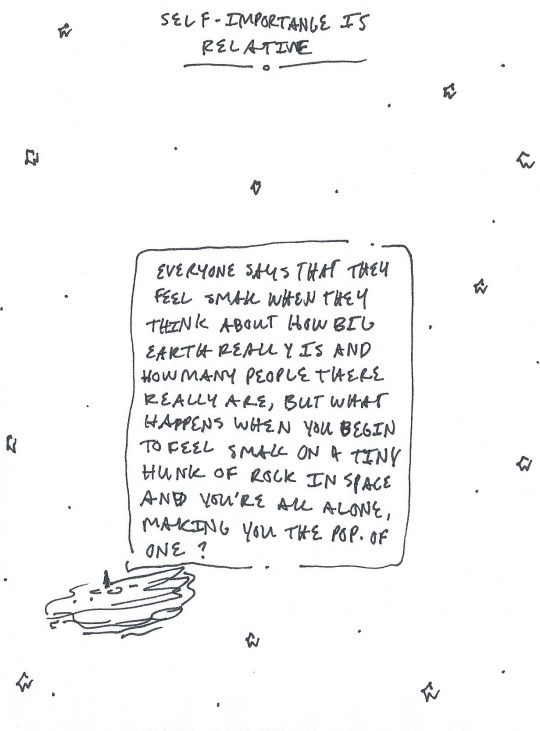 SELF-IMPORTANCE IS
RELATIVE
EVERYONE SAYS THAT THEY
FEEL SMALL WHEN THEY
THINK ABOUT HOW BIG
EARTH REALLY IS AND
HOW MANY PEOPLE THERE
REALLY ARE, BUT WHAT
HAPPENS WHEN YOU BEGIN
TO FEEL SMALL ON A TINY
HUNK OF ROCK IN SPACE
AND YOU'RE ALL ALONE,
MAKING YOU THE POP. OF
ONE ?